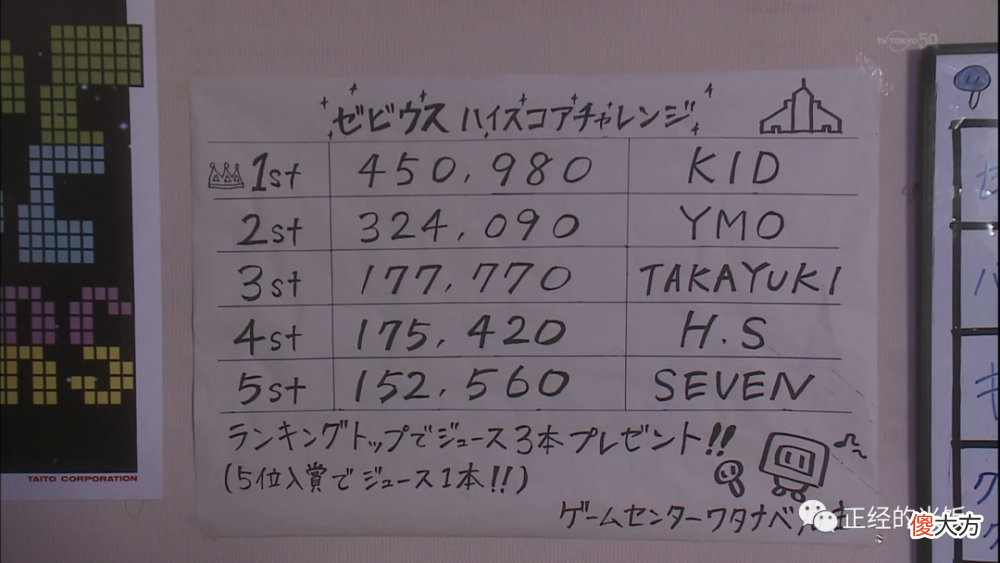 TV TOKYO 50
ゼビウス ハイスコアチャレンジ
1st 450,980 KID
2st 324,090 YMO
3st 177,770 TAKAYUKI
4st 175,420 H.S
5st 152,560 SEVEN
ランキングトップでジュース3本プレゼント!!
(5位入賞でジュース1本!!)
ゲームセンターワタナベ
TAITO CORPORATION
正经的
傻大方